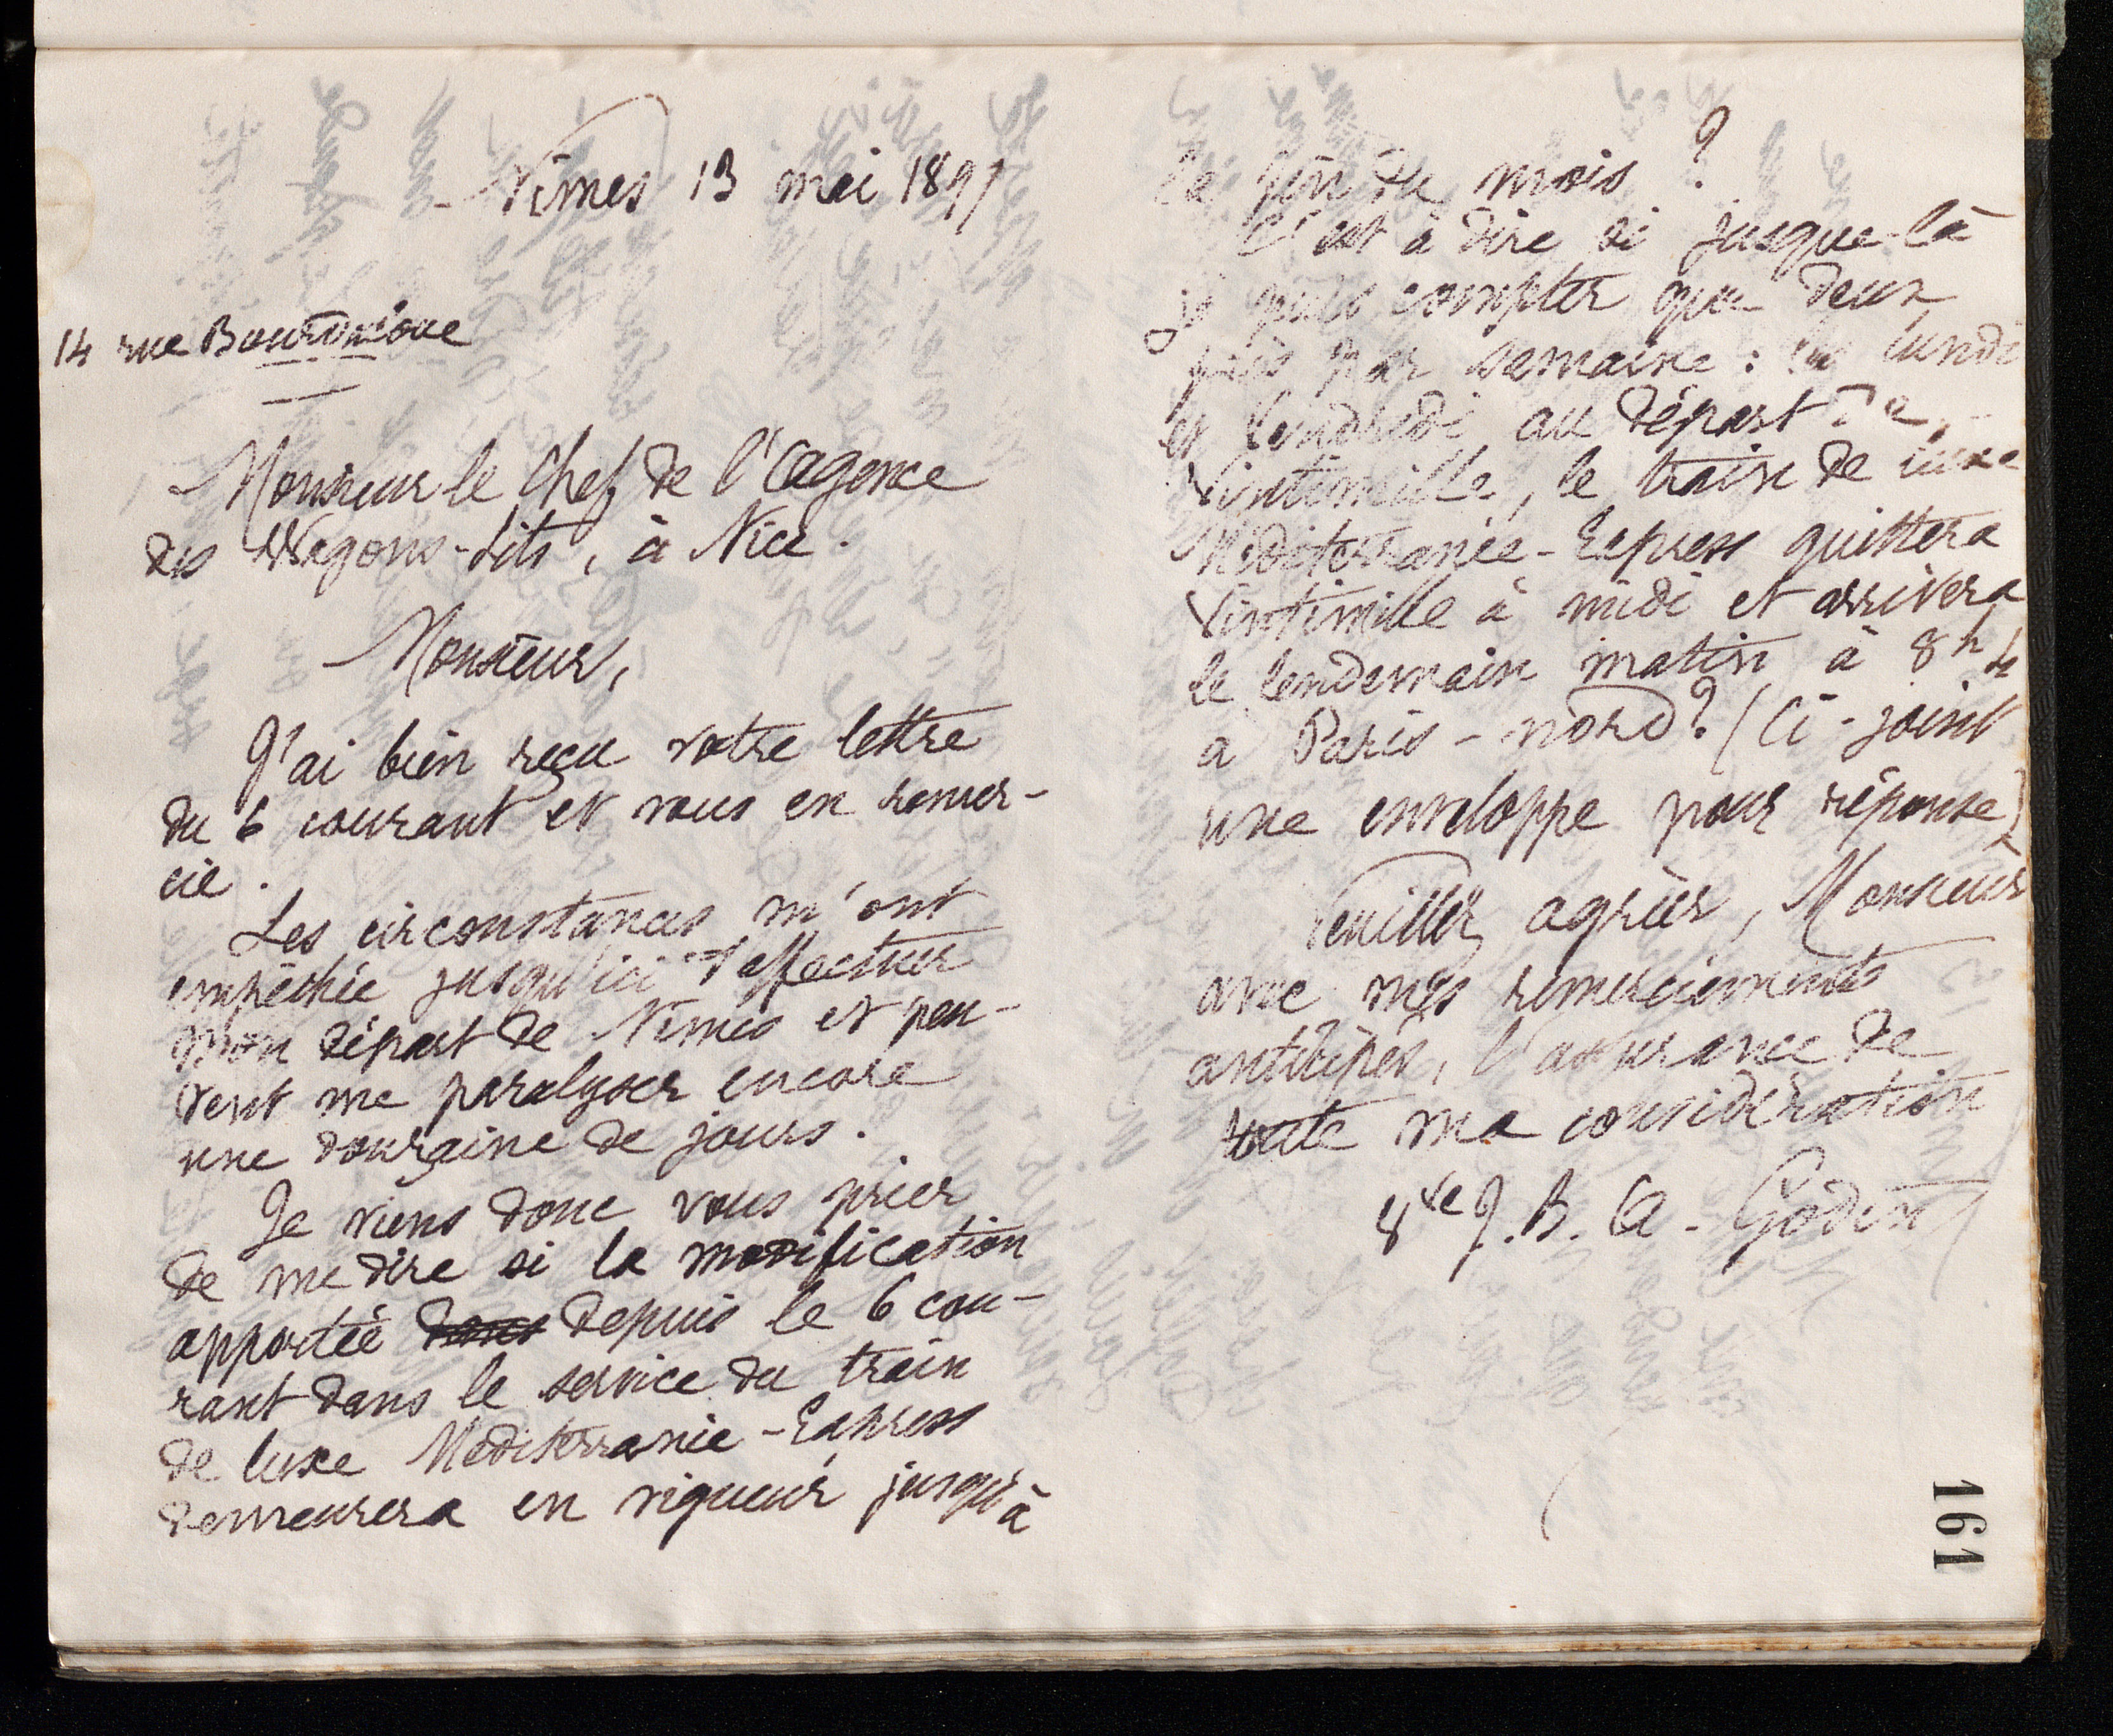 Nîmes 13 mai 1897
14 rue Bourdaloue
Monsieur le Chef de l'Agence
des Wagons-Lits, à Nice.
Monsieur,
J'ai bien reçu votre lettre
du 6 courant et vous en remer-
cie.
Les circonstances m'ont
empêchée jusqu'ici d'effectuer
mon départ de Nîmes et peu-
vent me paralyser encore
une douzaine de jours.
Je viens donc vous prier
de me dire si la modification
apportée dans depuis le 6 cou-
rant dans le service du train
de luxe Méditerranée-Express
demeurera en vigueur jusqu'à
la fin du mois ?
C'est à dire si jusque-là
je puis compter que deux
fois par semaine : les lundi
et vendredi au départ de
Vintimille, le train de luxe
Méditerranée-Express quittera
Vintimille à midi et arrivera
le lendemain matin à 8h
à Paris-nord ? (Ci-joint
une enveloppe pour réponse)
Veuillez agréer, Monsieur
avec mes remerciements
anticipés, l'assurance de
toute ma considération
Vve J. B. A. Godin
161